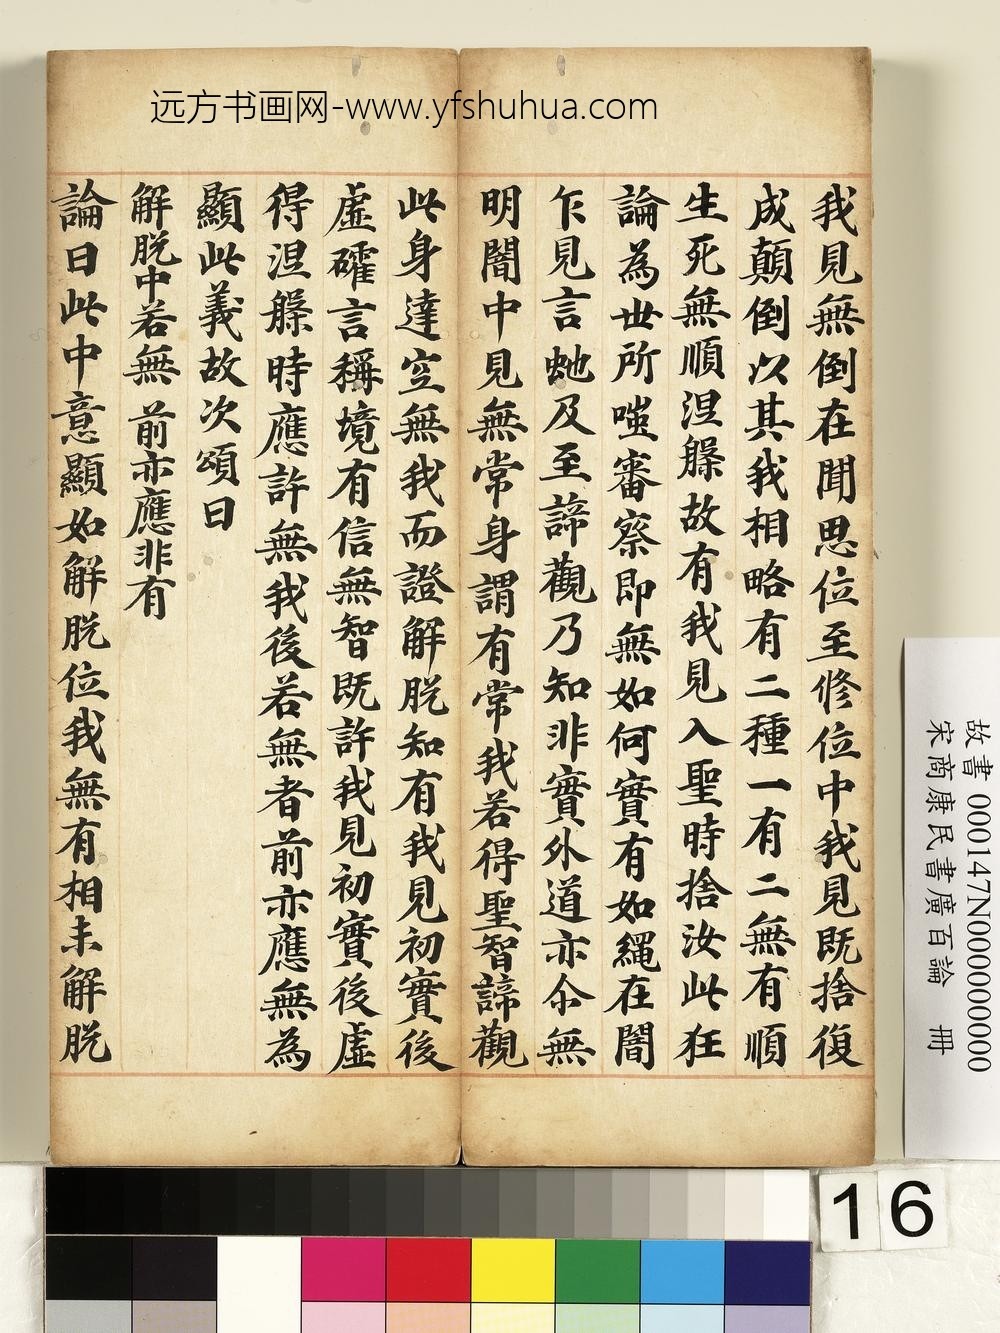 远方书画网-www.yfshuhua.com
我見無倒在聞思位至修位中我見既捨復
成顛倒以其我相略有二種一有二無有順
生死無順涅槃故有我見入聖時捨汝此狂
論為世所嗤審察即無如何實有如繩在闇
乍見言虵及至諦觀乃知非實外道亦尒無
明闇中見無常身謂有常我若得聖智諦觀
此身達空無我而證解脱知有我見初實後
虛確言稱境有信無智既許我見初實後虛
得涅槃時應許無我後若無者前亦應無為
顯此義故次頌曰
解脱中若無 前亦應非有
論曰此中意顯如解脱位我無有相未解脱
故書 000147N000000000
宋商康民書廣百論 冊
16